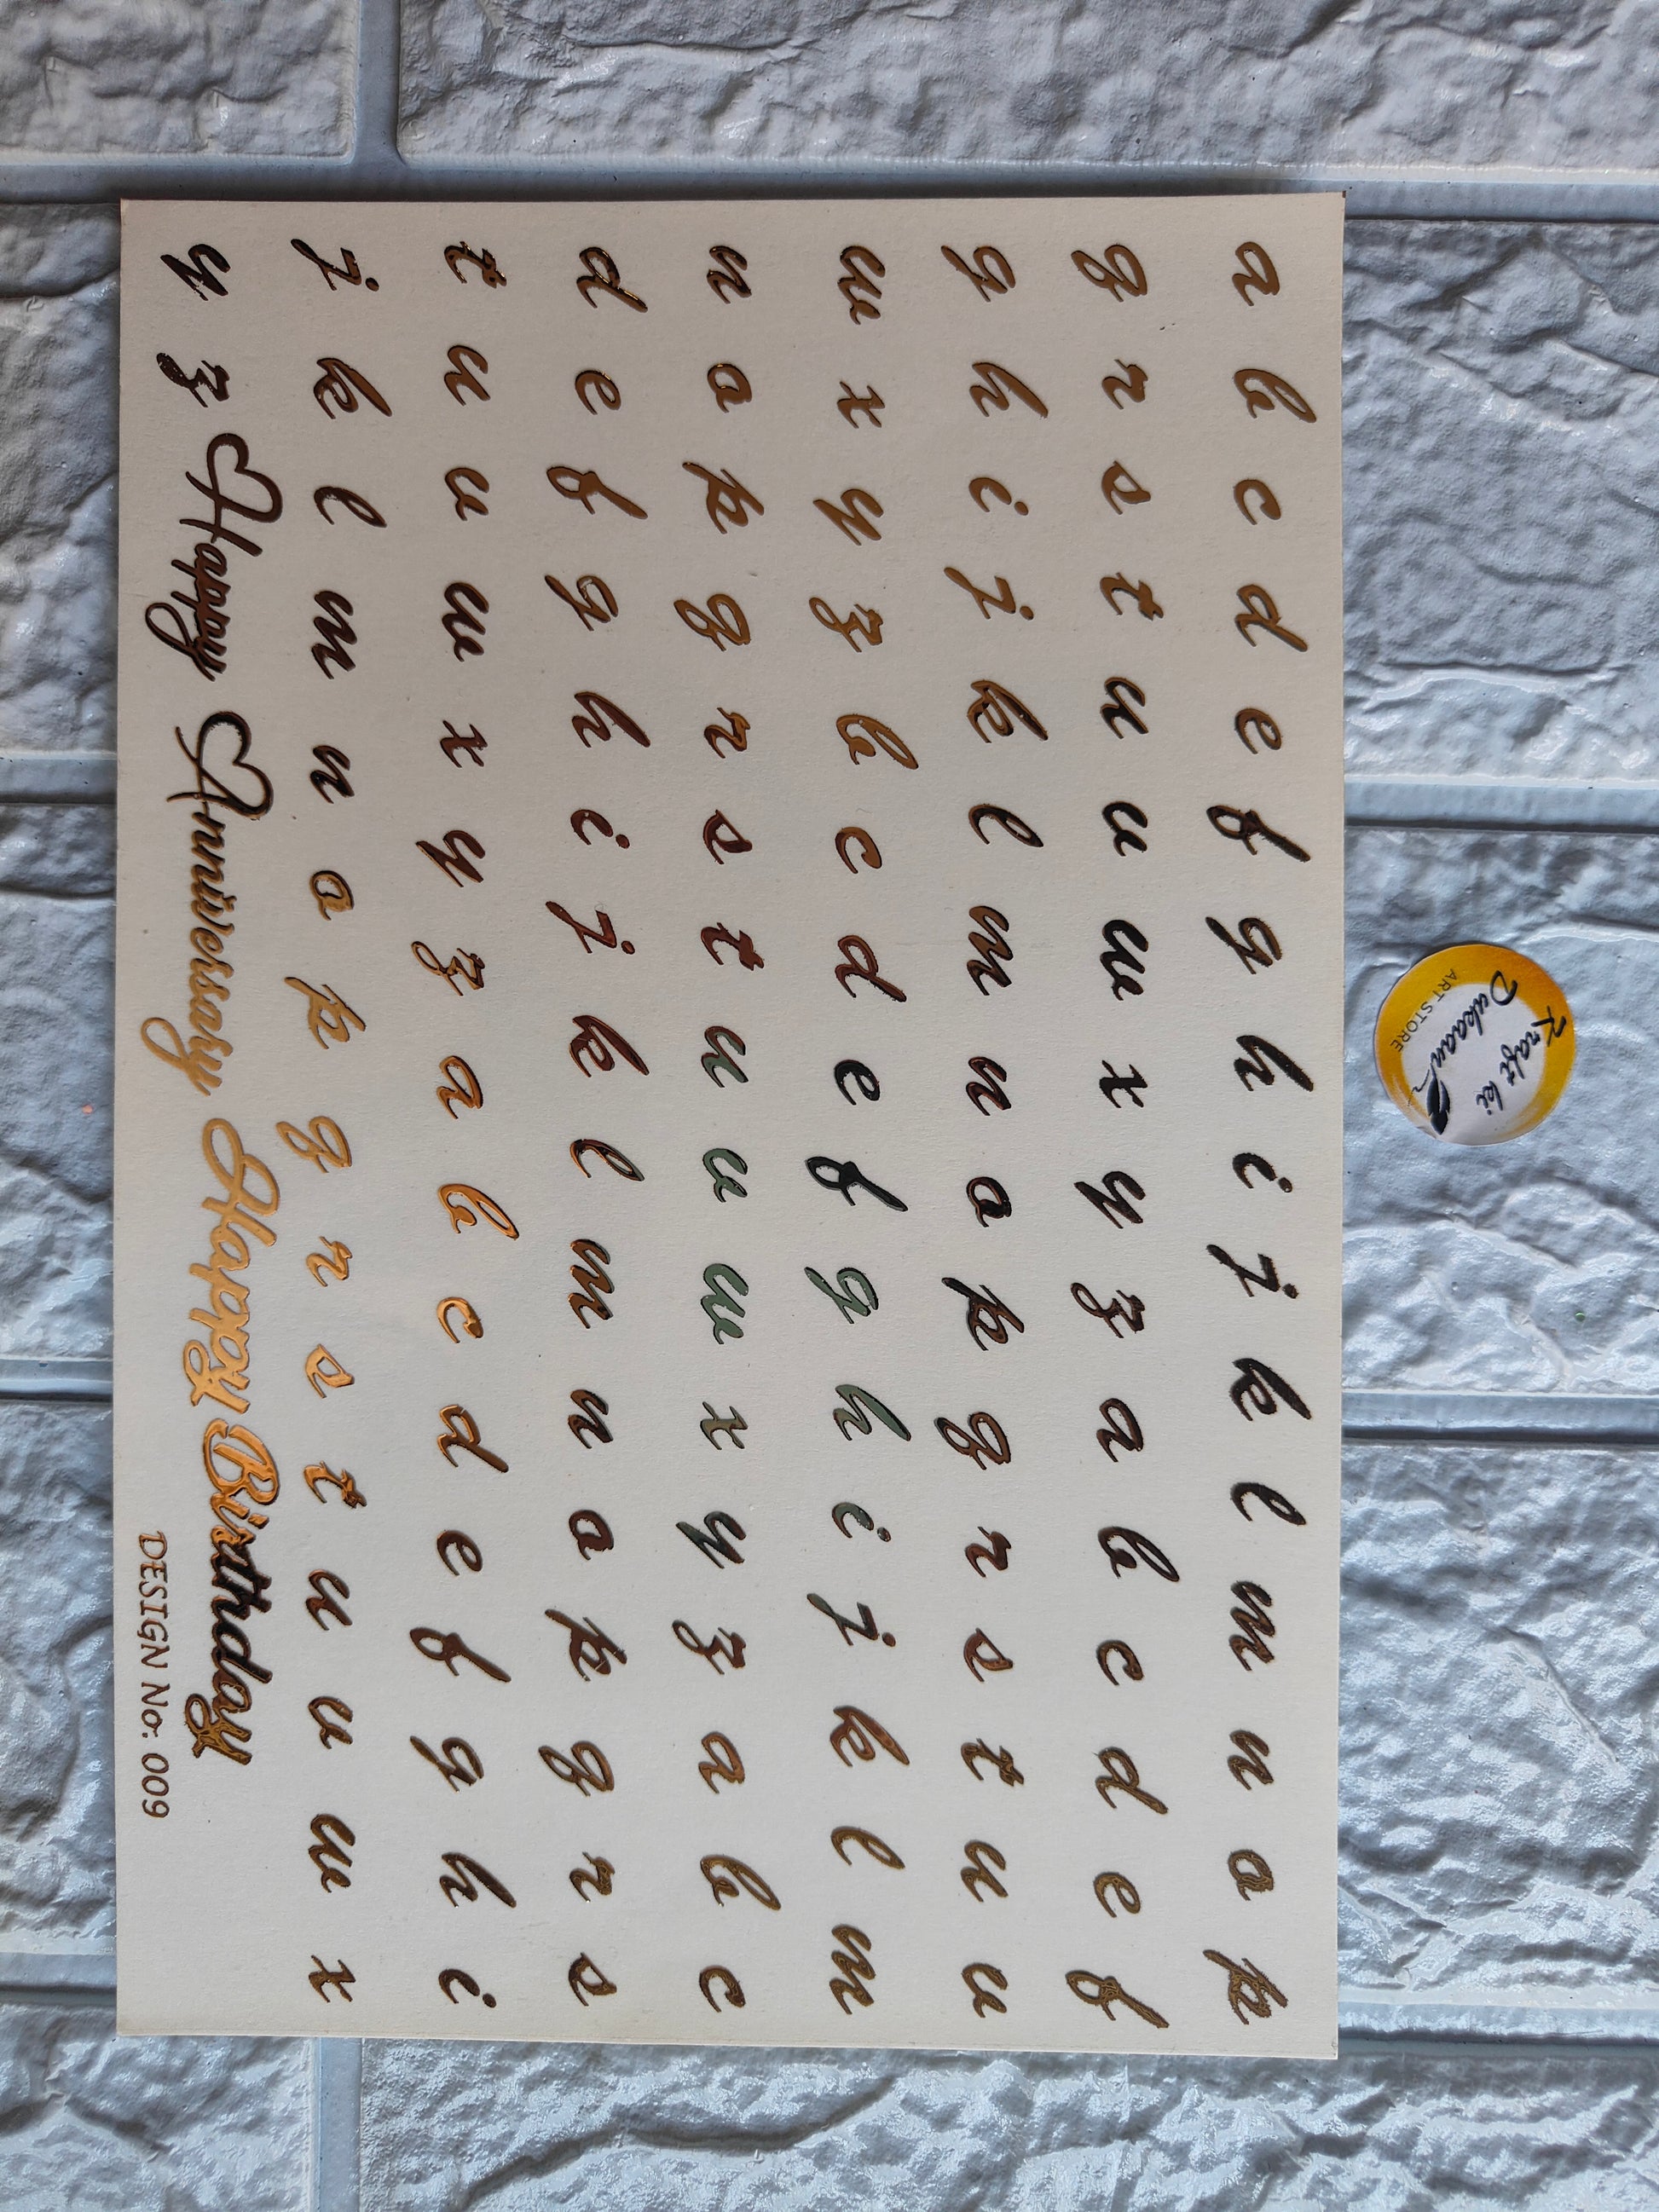 Kraft ki
Dukaan
ART STORE
a b c d e f g h i j k l m n o p
q r s t u v w x y z a b c d e f
g h i j k l m n o p q r s t u v
w x y z b c d e f g h i j k l m
n o p q r s t u v w x y z a b c
d e f g h i j k l m n o p q r s
t u v w x y z a b c d e f g h i
j k l m n o p q r s t u v w x
y z Happy Anniversary Happy Birthday
DESIGN No: 009